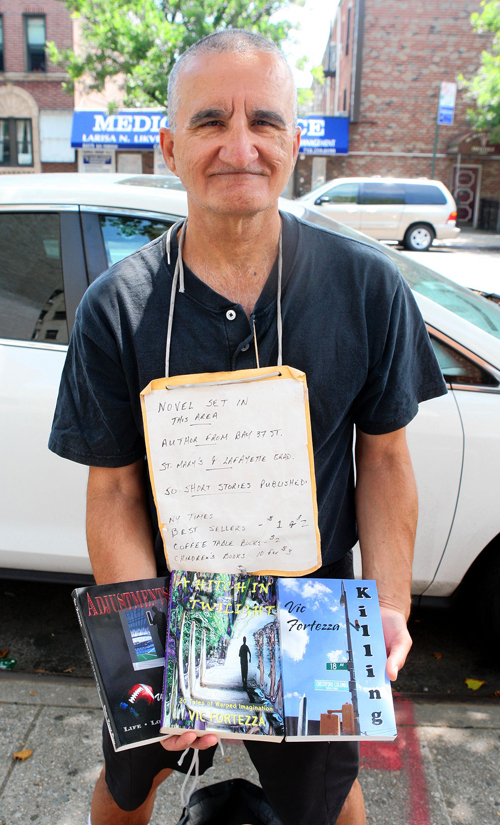 MEDIC
CE
LARISA N. LIKV
MANAGEMENT
NOVEL SET IN
THIS AREA
AUTHOR FROM BAY 37 ST.
ST. MARY'S & LAFAYETTE GRAD.
50 SHORT STORIES PUBLISHED!
NY TIMES
BEST SELLERS - $1 & $2
COFFEE TABLE BOOKS - $2
CHILDREN'S BOOKS 10 for $3
ADJUSTMENTS
LIFE
A HITCH IN
TWILIGHT
Tales of Warped Imagination
VIC FORTEZZA
Vic
Fortezza
Killing
18 AV